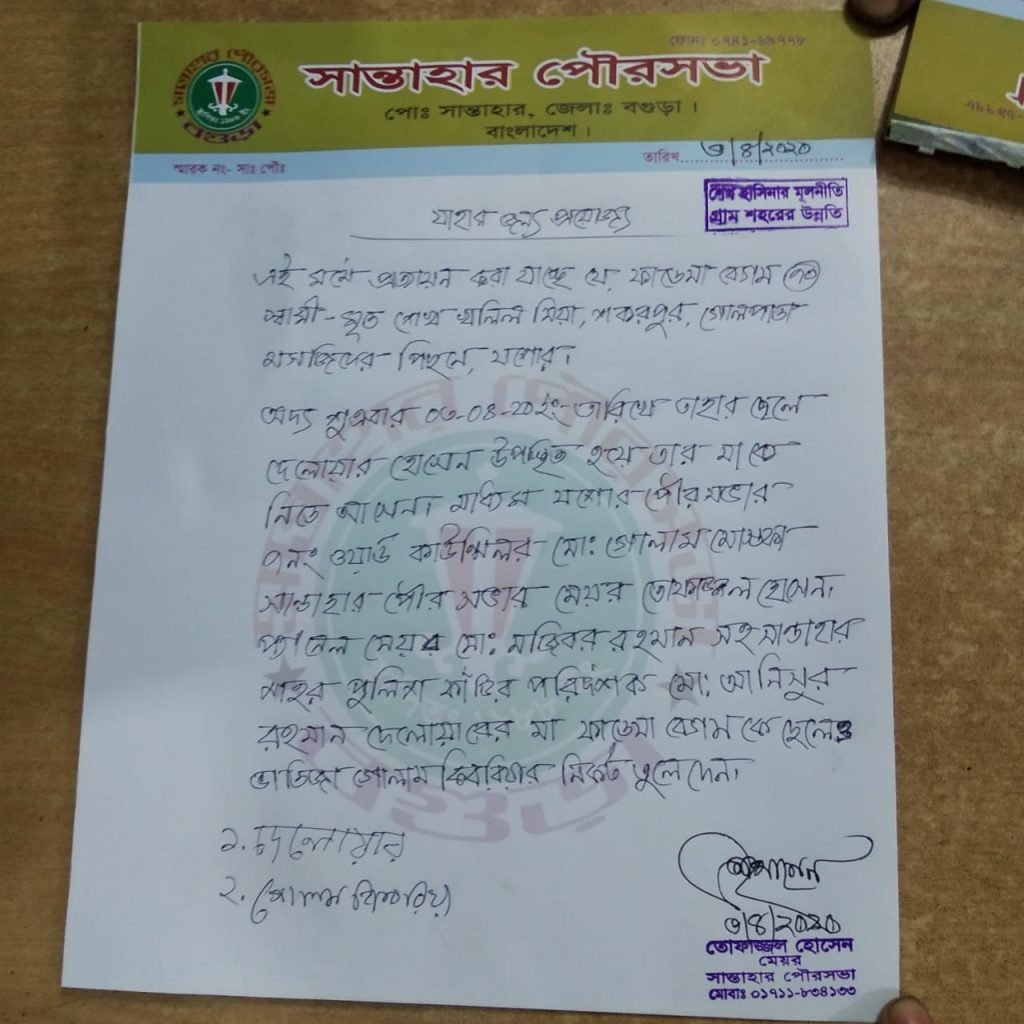 ফোনঃ ০৭৪১-৬৯৭৭৮
সান্তাহার পৌরসভা
পোঃ সান্তাহার, জেলাঃ বগুড়া ।
বাংলাদেশ ।
স্মারক নং- সাঃ পৌঃ
তারিখ ৩/৪/২০২০
শেখ হাসিনার মূলনীতি
গ্রাম শহরের উন্নতি
যাহার জন্য প্রযোজ্য
এই মর্মে প্রত্যয়ন করা যাচ্ছে যে, ফাতেমা বেগম
স্বামী - মৃত শেখ খলিল মিয়া, শংকরপুর, গোলপাতা
মসজিদের পিছনে, যশোর।
অদ্য শুক্রবার ০৩-০৪-২০ইং তারিখে তাহার ছেলে
দেলোয়ার হোসেন উপস্থিত হয়ে তার মাকে
নিতে আসেন। মাধ্যম যশোর পৌরসভার
৭নং ওয়ার্ড কাউন্সিলর মোঃ গোলাম মোস্তফা
সান্তাহার পৌর সভার মেয়র তোফাজ্জল হোসেন।
প্যানেল মেয়র মোঃ মজিবর রহমান সহ সান্তাহার
শহর পুলিশ ফাঁড়ির পরিদর্শক মোঃ আনিসুর
রহমান দেলোয়ারের মা ফাতেমা বেগম কে ছেলে ও
ভাতিজা গোলাম কিবরিয়ার নিকট তুলে দেন।
১. দেলোয়ার
২. গোলাম কিবরিয়া
৩/৪/২০২০
তোফাজ্জল হোসেন
মেয়র
সান্তাহার পৌরসভা
মোবাঃ ০১৭১১-৮৩৪১৩৩